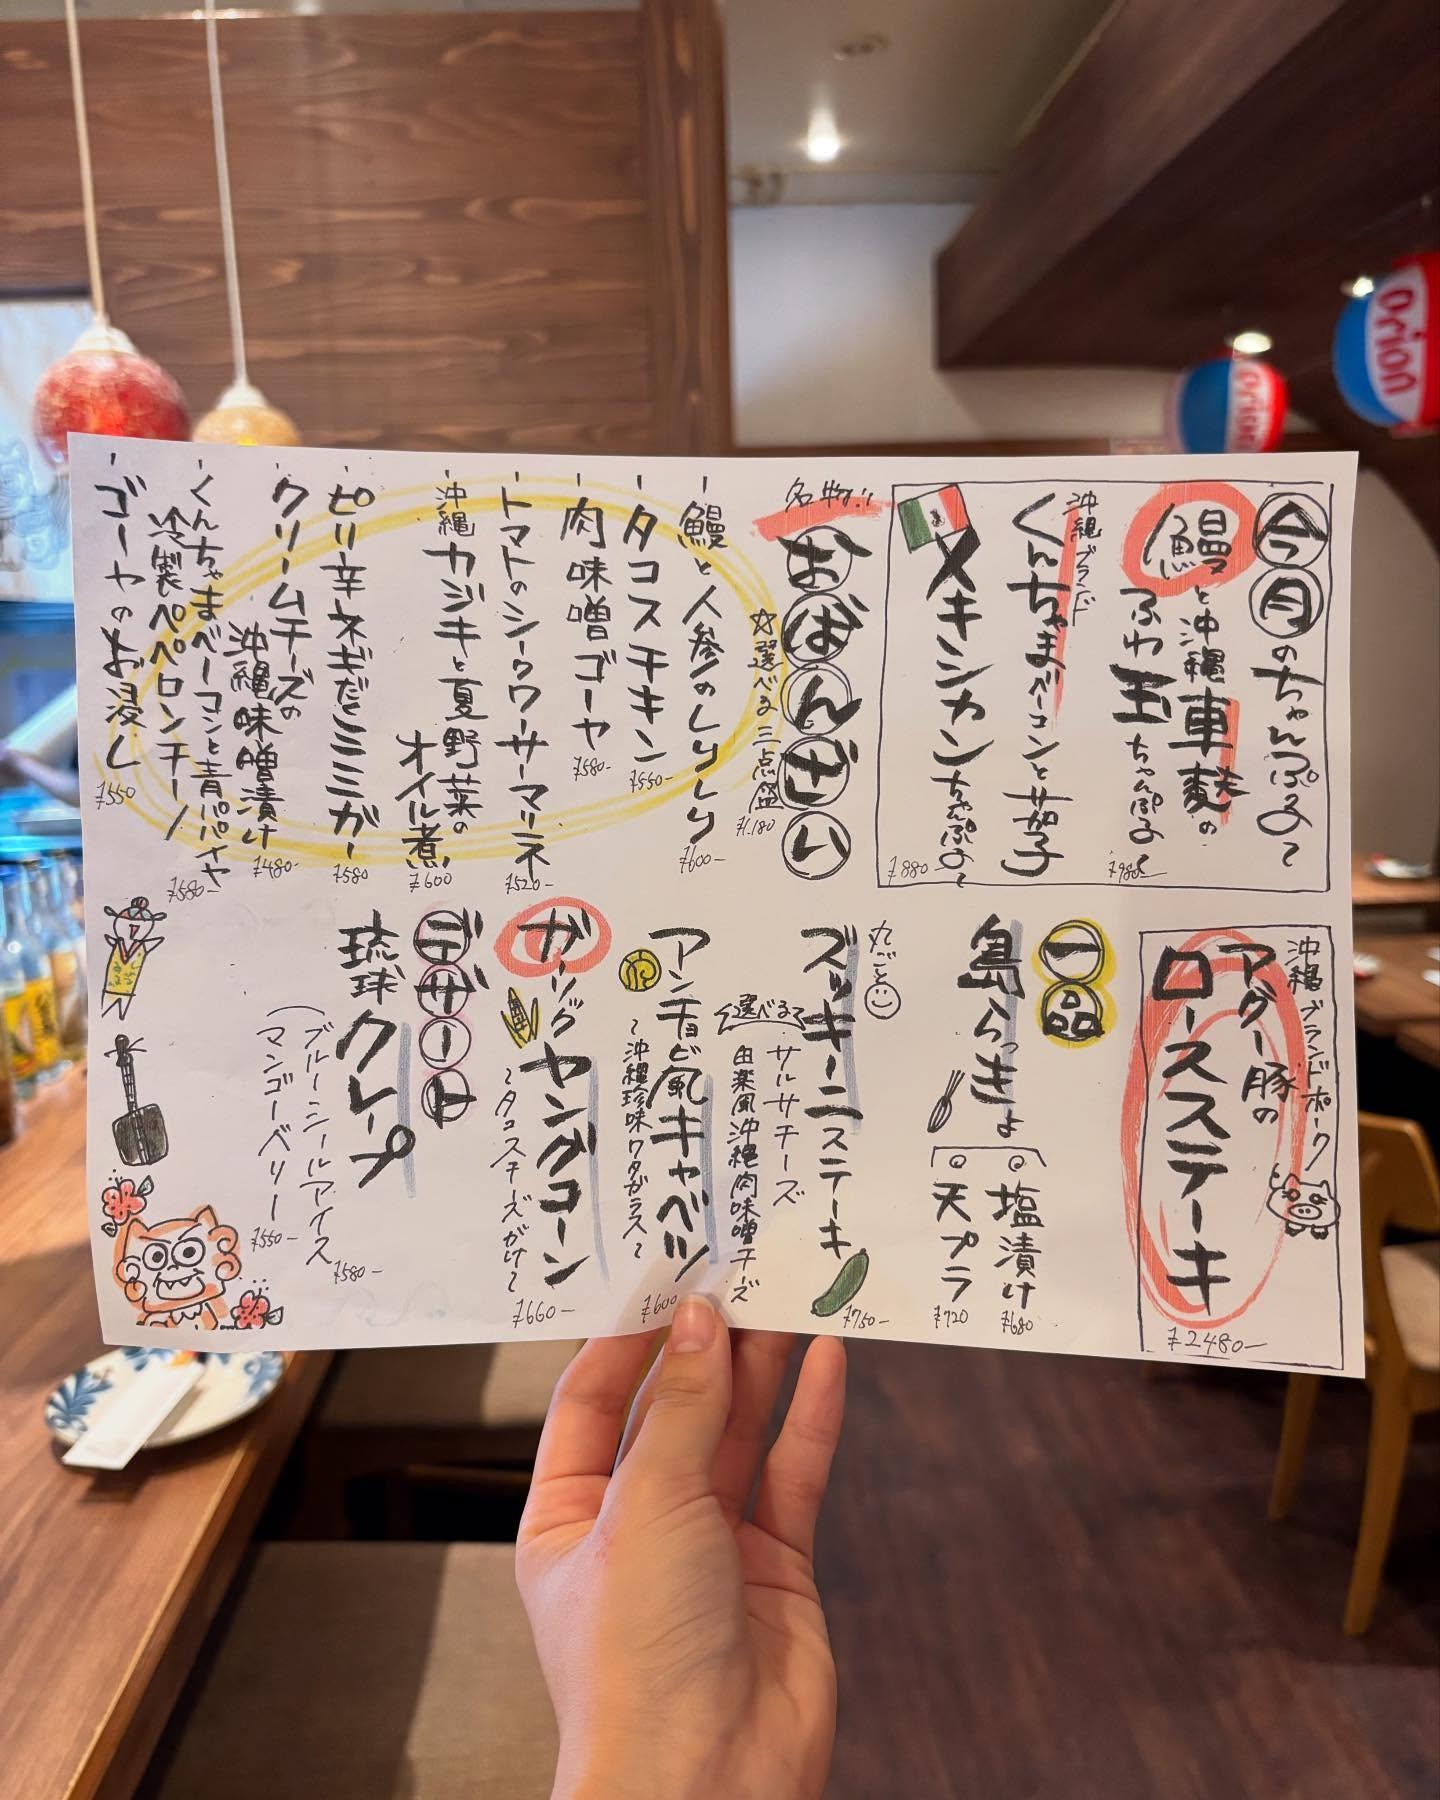 今月のちゃんぷるぅ
鰻と沖縄車麩の
ふわ玉ちゃんぷるぅ
¥980-
沖縄ブランド
くんちゃまベーコンと茄子
メキシカンちゃんぷるぅ
¥880
名物!!
おばんざい
☆選べる三点盛
¥1,180
-鰻と人参のしりしり
¥600-
-タコスチキン
¥550-
-肉味噌ゴーヤ
¥580-
-トマトのシークワーサーマリネ
¥520-
-沖縄カジキと夏野菜の
オイル煮
¥600
-ピリ辛ネギだミミガー
¥580
-クリームチーズの
沖縄味噌漬け
¥480-
-くんちゃまベーコンと青パパイヤ
冷製ペペロンチーノ
¥580-
-ゴーヤのお浸し
¥550
沖縄ブランドポーク
アグー豚の
ロースステーキ
¥2480-
一品
島らっきょ
塩漬け
¥680
天プラ
¥720
丸ごと
ズッキーニステーキ
¥750-
選べる
サルサチーズ
由楽風沖縄肉味噌チーズ
アンチョビ風キャベツ
~沖縄珍味ワタガラス~
¥600
ガーリックヤングコーン
~タコスチーズがけ~
¥660-
デザート
琉球クレープ
(ブルーシールアイス
¥580-
マンゴーベリー
¥550-
Orion
Orion